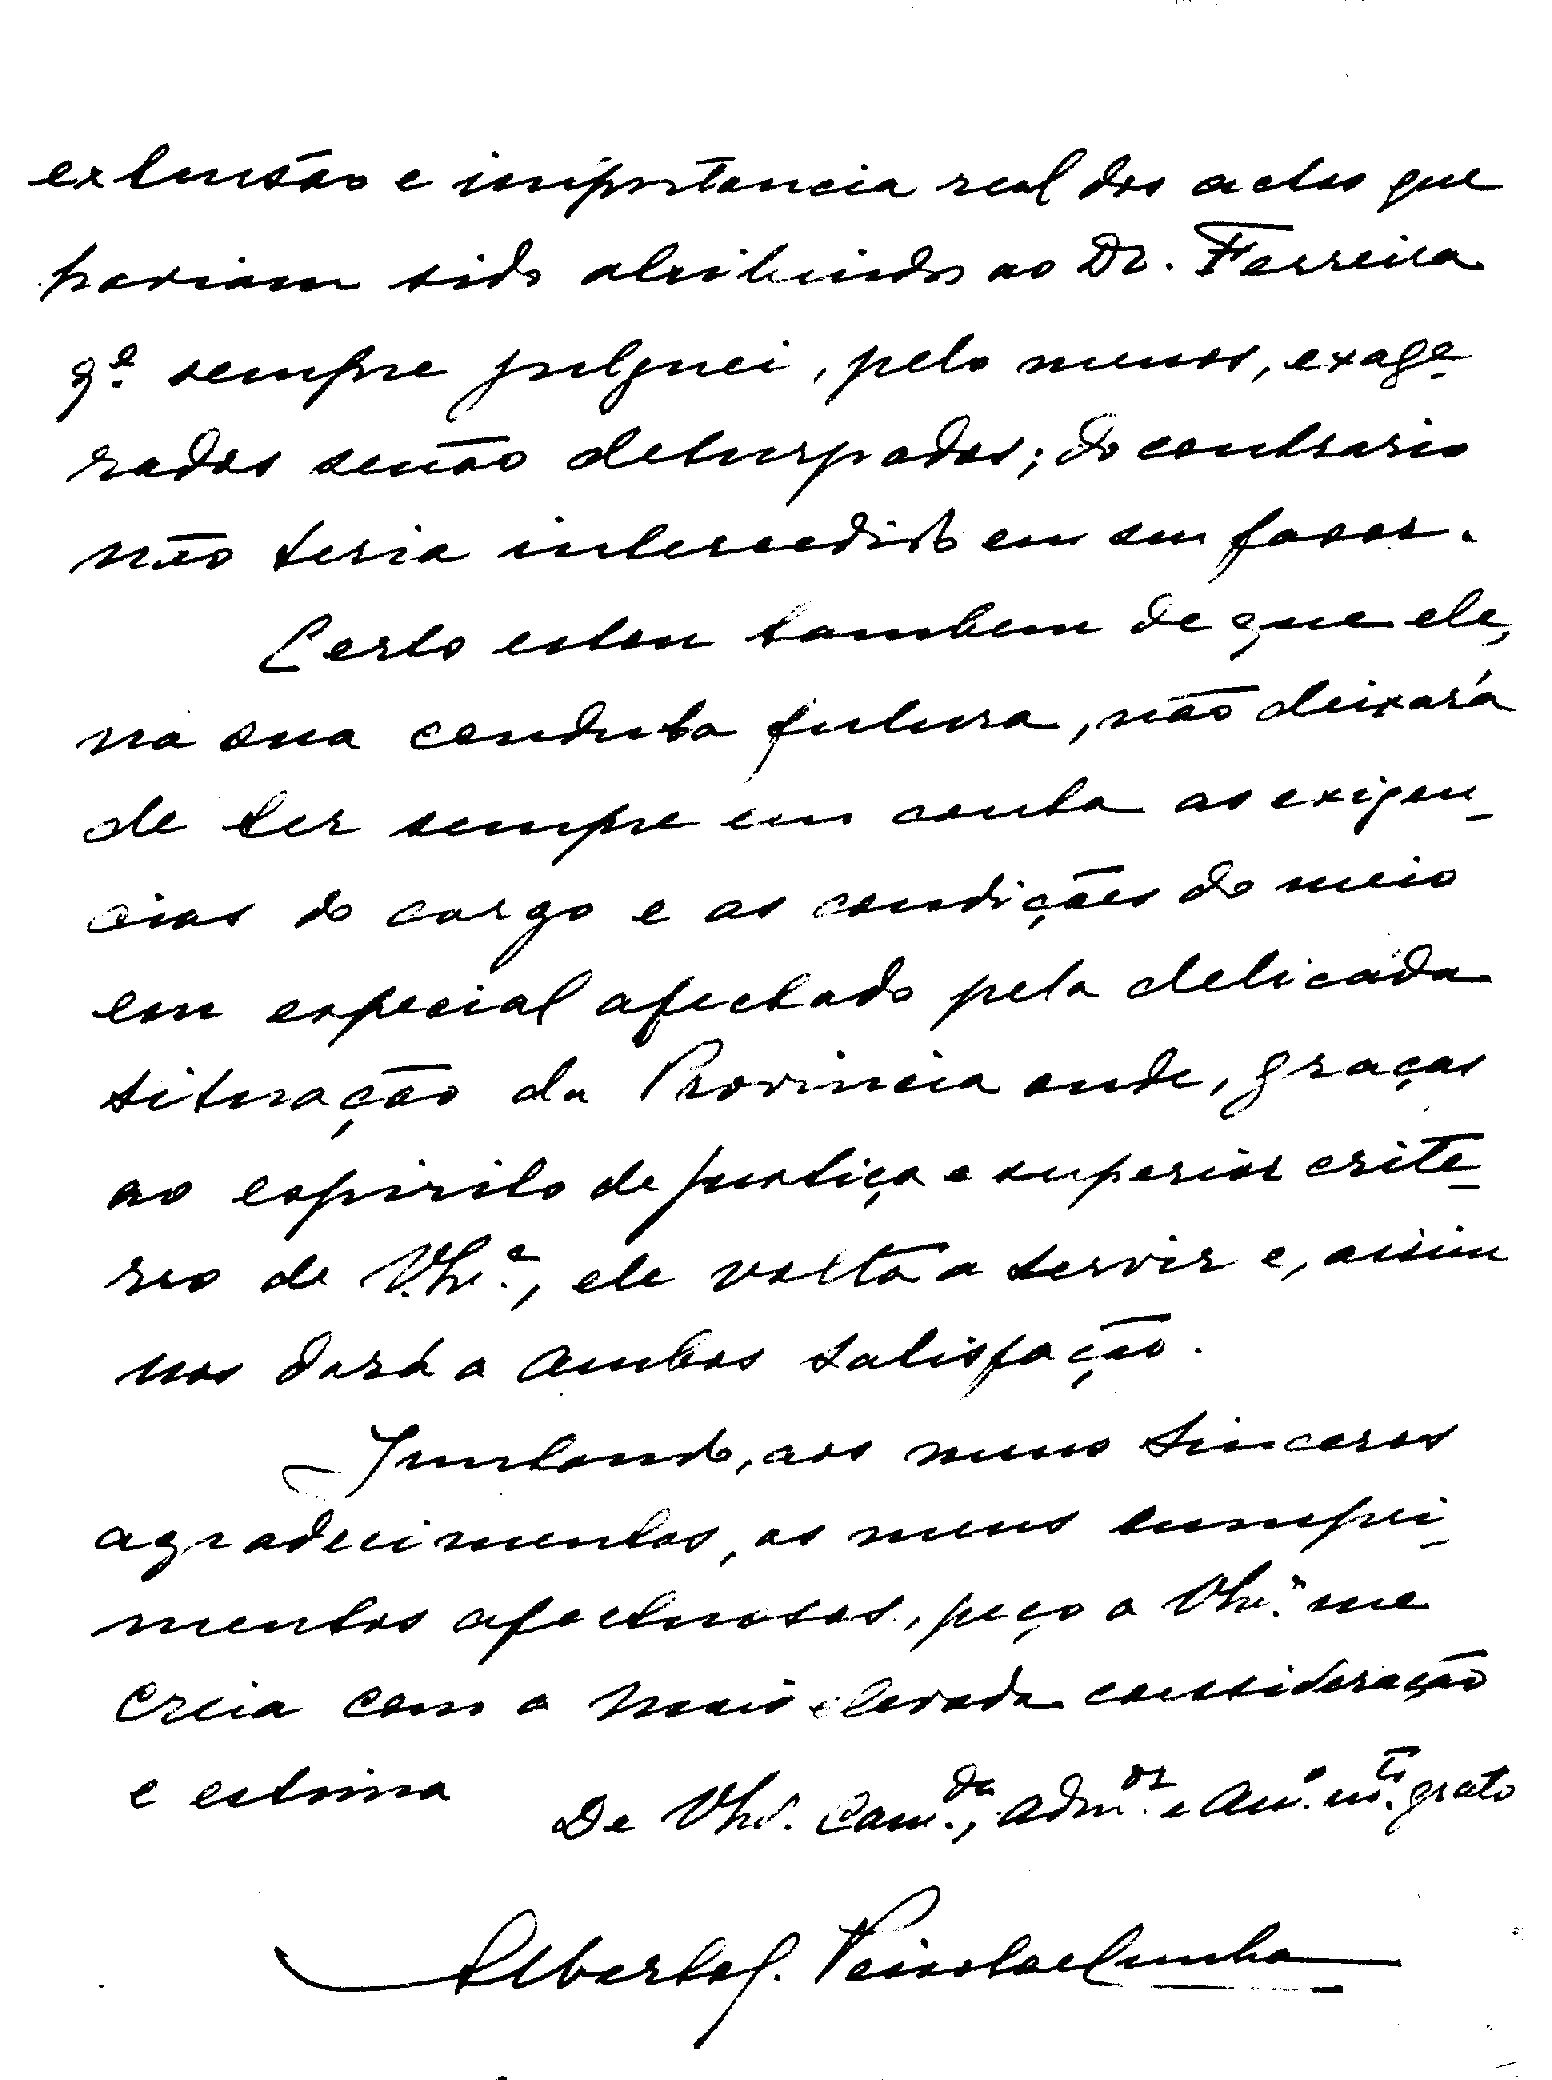 extensão e importancia real dos actos que
haviam sido atribuidos ao Dr. Ferreira
q.e sempre julguei, pelo menos, exage-
rados senão deturpados; do contrario
não teria intercedido em seu favor.
Certo estou tambem de que ele,
na sua conduta futura, não deixará
de ter sempre em conta as exigen-
cias do cargo e as condições do meio
em especial afectado pela delicada
situação da Provincia onde, graças
ao espirito de justiça e superior crite-
rio de V. Ex.ª, ele volta a servir e, assim
nos dará a ambos satisfação.
Juntando, aos meus sinceros
agradecimentos, os meus cumpri-
mentos afectuosos, peço a V. Ex.ª me
creia com a mais elevada consideração
e estima
De V. Ex.ª Cam.da, adm.or e am.o m.to grato
Alberto C. Peixoto e Cunha